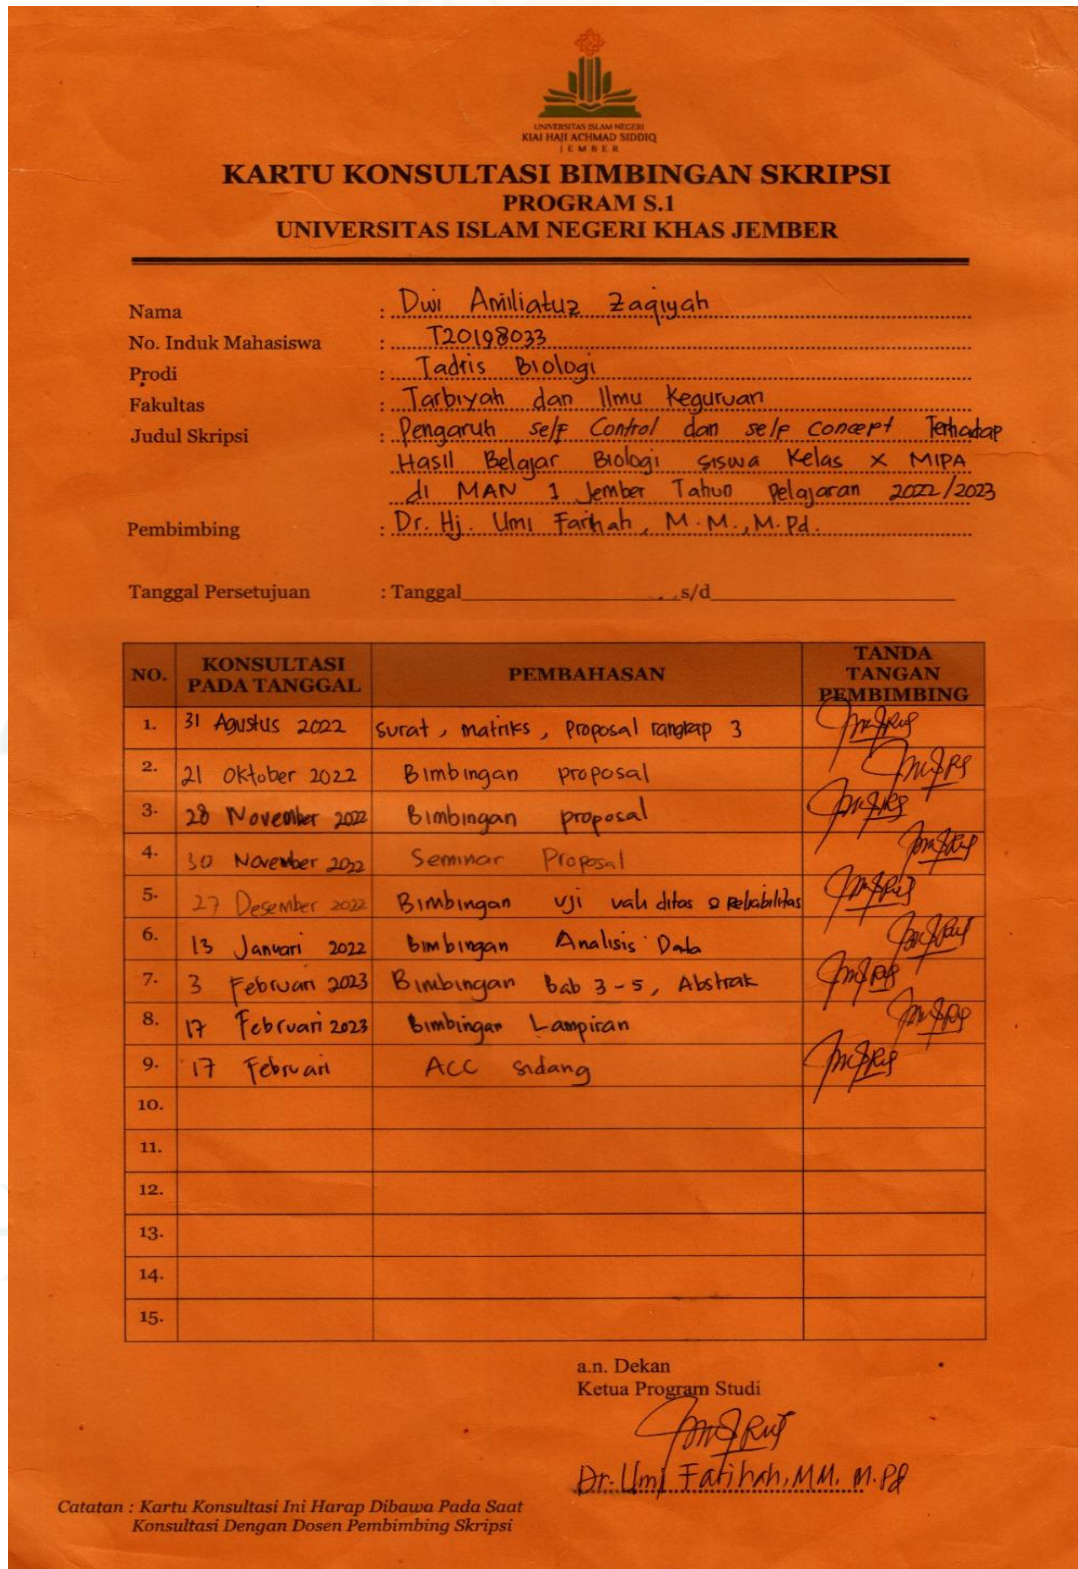 UNIVERSITAS ISLAM NEGERI
KIAI HAJI ACHMAD SIDDIQ
JEMBER
KARTU KONSULTASI BIMBINGAN SKRIPSI
PROGRAM S.1
UNIVERSITAS ISLAM NEGERI KHAS JEMBER
Nama : Dwi Amiliatuz Zaqiyah
No. Induk Mahasiswa : T20198033
Prodi : Tadris Biologi
Fakultas : Tarbiyah dan Ilmu Keguruan
Judul Skripsi : Pengaruh self Control dan self concept Terhadap
Hasil Belajar Biologi siswa Kelas X MIPA
di MAN 1 Jember Tahun Pelajaran 2022/2023
Pembimbing : Dr. Hj. Umi Farihah, M.M., M.Pd.
Tanggal Persetujuan : Tanggal s/d
NO. KONSULTASI PADA TANGGAL PEMBAHASAN TANDA TANGAN PEMBIMBING
1. 31 Agustus 2022 surat, matriks, Proposal rangkap 3
2. 21 Oktober 2022 Bimbingan proposal
3. 28 November 2022 Bimbingan proposal
4. 30 November 2022 Seminar Proposal
5. 27 Desember 2022 Bimbingan uji validitas & Reliabilitas
6. 13 Januari 2022 Bimbingan Analisis Data
7. 3 Februari 2023 Bimbingan Bab 3-5, Abstrak
8. 17 Februari 2023 Bimbingan Lampiran
9. 17 Februari ACC sidang
10.
11.
12.
13.
14.
15.
a.n. Dekan
Ketua Program Studi
Dr. Umi Farihah, MM. M.Pd
Catatan : Kartu Konsultasi Ini Harap Dibawa Pada Saat
Konsultasi Dengan Dosen Pembimbing Skripsi